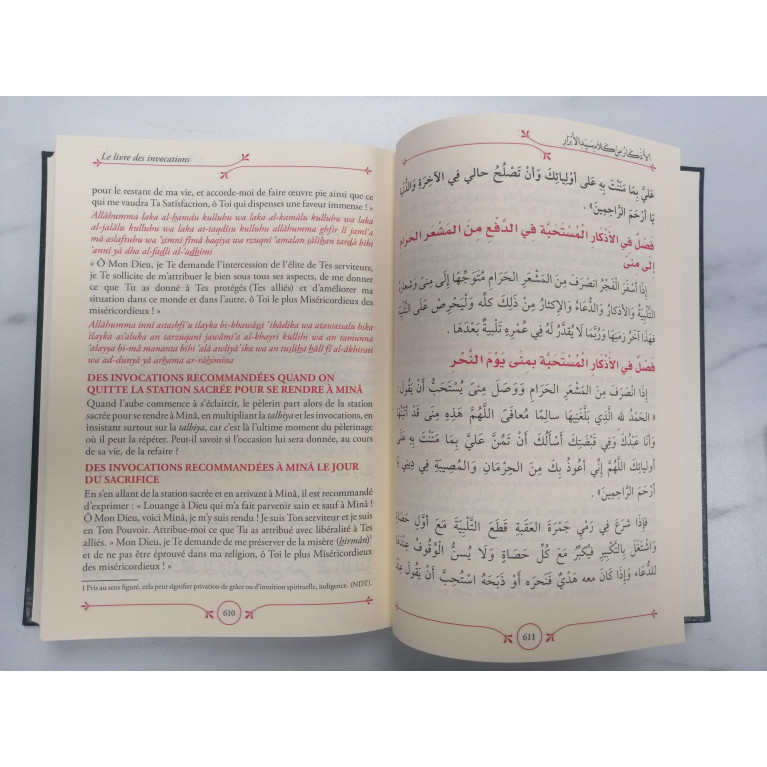 Le livre des invocations
pour le restant de ma vie, et accorde-moi de faire œuvre pie ainsi que ce
qui me vaudra Ta Satisfaction, ô Toi qui dispenses une faveur immense ! »
Allâhumma laka al-hamdu kulluhu wa laka al-kamâlu kulluhu wa laka
al-jalâlu kulluhu wa laka at-taqdîsu kulluhu allâhumma ghfir lî jamî'a
mâ aslaftuhu wa 'imnî fîmâ baqiya wa rzuqnî 'amalan sâlihan tardâ bihi
'annî yâ dha al-fadli al-'adhîmi
« Ô Mon Dieu, je Te demande l'intercession de l'élite de Tes serviteurs,
je Te sollicite de m'attribuer le bien sous tous ses aspects, de me donner
ce que Tu as donné à Tes protégés (Tes alliés) et d'améliorer ma
situation dans ce monde et dans l'autre, ô Toi le plus Miséricordieux des
miséricordieux ! »
Allâhumma innî astashfi'u ilayka bi-khawâssi 'ibâdika wa atawasalu bika
ilayka as'aluka an tarzuqanî jawâmi'a al-khayri kullihi wa an tamunna
'alayya bi-mâ mananta bihi 'alâ awliyâ'ika wa an tusliha hâlî fî al-âkhirati
wa ad-dunyâ yâ arhama ar-râhimîna
DES INVOCATIONS RECOMMANDÉES QUAND ON
QUITTE LA STATION SACRÉE POUR SE RENDRE À MINÂ
Quand l'aube commence à s'éclaircir, le pèlerin part alors de la station
sacrée pour se rendre à Minâ, en multipliant la talbiya et les invocations, en
insistant surtout sur la talbiya, car c'est là l'ultime moment du pèlerinage
où il peut la répéter. Peut-il savoir si l'occasion lui sera donnée, au cours
de sa vie, de la refaire ?
DES INVOCATIONS RECOMMANDÉES À MINÂ LE JOUR
DU SACRIFICE
En s'en allant de la station sacrée et en arrivant à Minâ, il est recommandé
d'exprimer : « Louange à Dieu qui m'a fait parvenir sain et sauf à Minâ !
Ô Mon Dieu, voici Minâ, je m'y suis rendu ! Je suis Ton serviteur et je suis
en Ton Pouvoir. Attribue-moi ce que Tu as attribué avec libéralité à Tes
alliés. » Mon Dieu, je Te demande de me préserver de la misère (hirmân)¹
et de ne pas être éprouvé dans ma religion, ô Toi le plus Miséricordieux des
miséricordieux ! »
1 Pris au sens figuré, cela peut signifier privation de grâce ou d'intuition spirituelle, indigence. (NDT).
610
الأذكار من كلام سيد الأبرار
عَلَيَّ بِمَا مَنَنْتَ بِهِ عَلَى أَوْلِيَائِكَ وَأَنْ تُصْلِحَ حَالِي فِي الآخِرَةِ وَالدُّنْيَا
يَا أَرْحَمَ الرَّاحِمِينَ».
فَصْلٌ فِي الأَذْكَارِ الْمُسْتَحَبَّةِ فِي الدَّفْعِ مِنَ المَشْعَرِ الحَرَامِ
إِلَى مِنىً
إِذَا أَسْفَرَ الْفَجْرُ انْصَرَفَ مِنَ المَشْعَرِ الْحَرَامِ مُتَوَجِّهًا إِلَى مِنىً وَشِعَارُهُ
التَّلْبِيَةُ وَالأَذْكَارُ وَالدُّعَاءُ وَالإِكْثَارُ مِنْ ذَلِكَ كُلِّهِ وَلْيَحْرِصْ عَلَى التَّلْبِيَةِ
فَهَذَا آخِرُ زَمَنِهَا وَرُبَّمَا لَا يُقَدَّرُ لَهُ فِي عُمُرِهِ تَلْبِيَةٌ بَعْدَهَا.
فَصْلٌ فِي الأَذْكَارِ الْمُسْتَحَبَّةِ بِمِنَى يَوْمَ النَّحْرِ
إِذَا انْصَرَفَ مِنَ المَشْعَرِ الْحَرَامِ وَوَصَلَ مِنىً يُسْتَحَبُّ أَنْ يَقُولَ:
«الْحَمْدُ لله الَّذِي بَلَّغَنِيهَا سَالِمًا مُعَافىً اللَّهُمَّ هَذِهِ مِنًى قَدْ أَتَيْتُهَا
وَأَنَا عَبْدُكَ وَفِي قَبْضَتِكَ أَسْأَلُكَ أَنْ تَمُنَّ عَلَيَّ بِمَا مَنَنْتَ بِهِ عَلَى
أَوْلِيَائِكَ اللَّهُمَّ إِنِّي أَعُوذُ بِكَ مِنَ الْحِرْمَانِ وَالْمُصِيبَةِ فِي دِينِي يَا
أَرْحَمَ الرَّاحِمِينَ».
فَإِذَا شَرَعَ فِي رَمْيِ جَمْرَةِ العَقَبَةِ قَطَعَ التَّلْبِيَةَ مَعَ أَوَّلِ حَصَاةٍ
وَاشْتَغَلَ بِالتَّكْبِيرِ فَيُكَبِّرُ مَعَ كُلِّ حَصَاةٍ وَلَا يُسَنُّ الْوُقُوفُ عِنْدَهَا
لِلدُّعَاءِ وَإِذَا كَانَ مَعَهُ هَدْيٌ فَنَحَرَهُ أَوْ ذَبَحَهُ اسْتُحِبَّ أَنْ يَقُولَ عِنْدَ
611